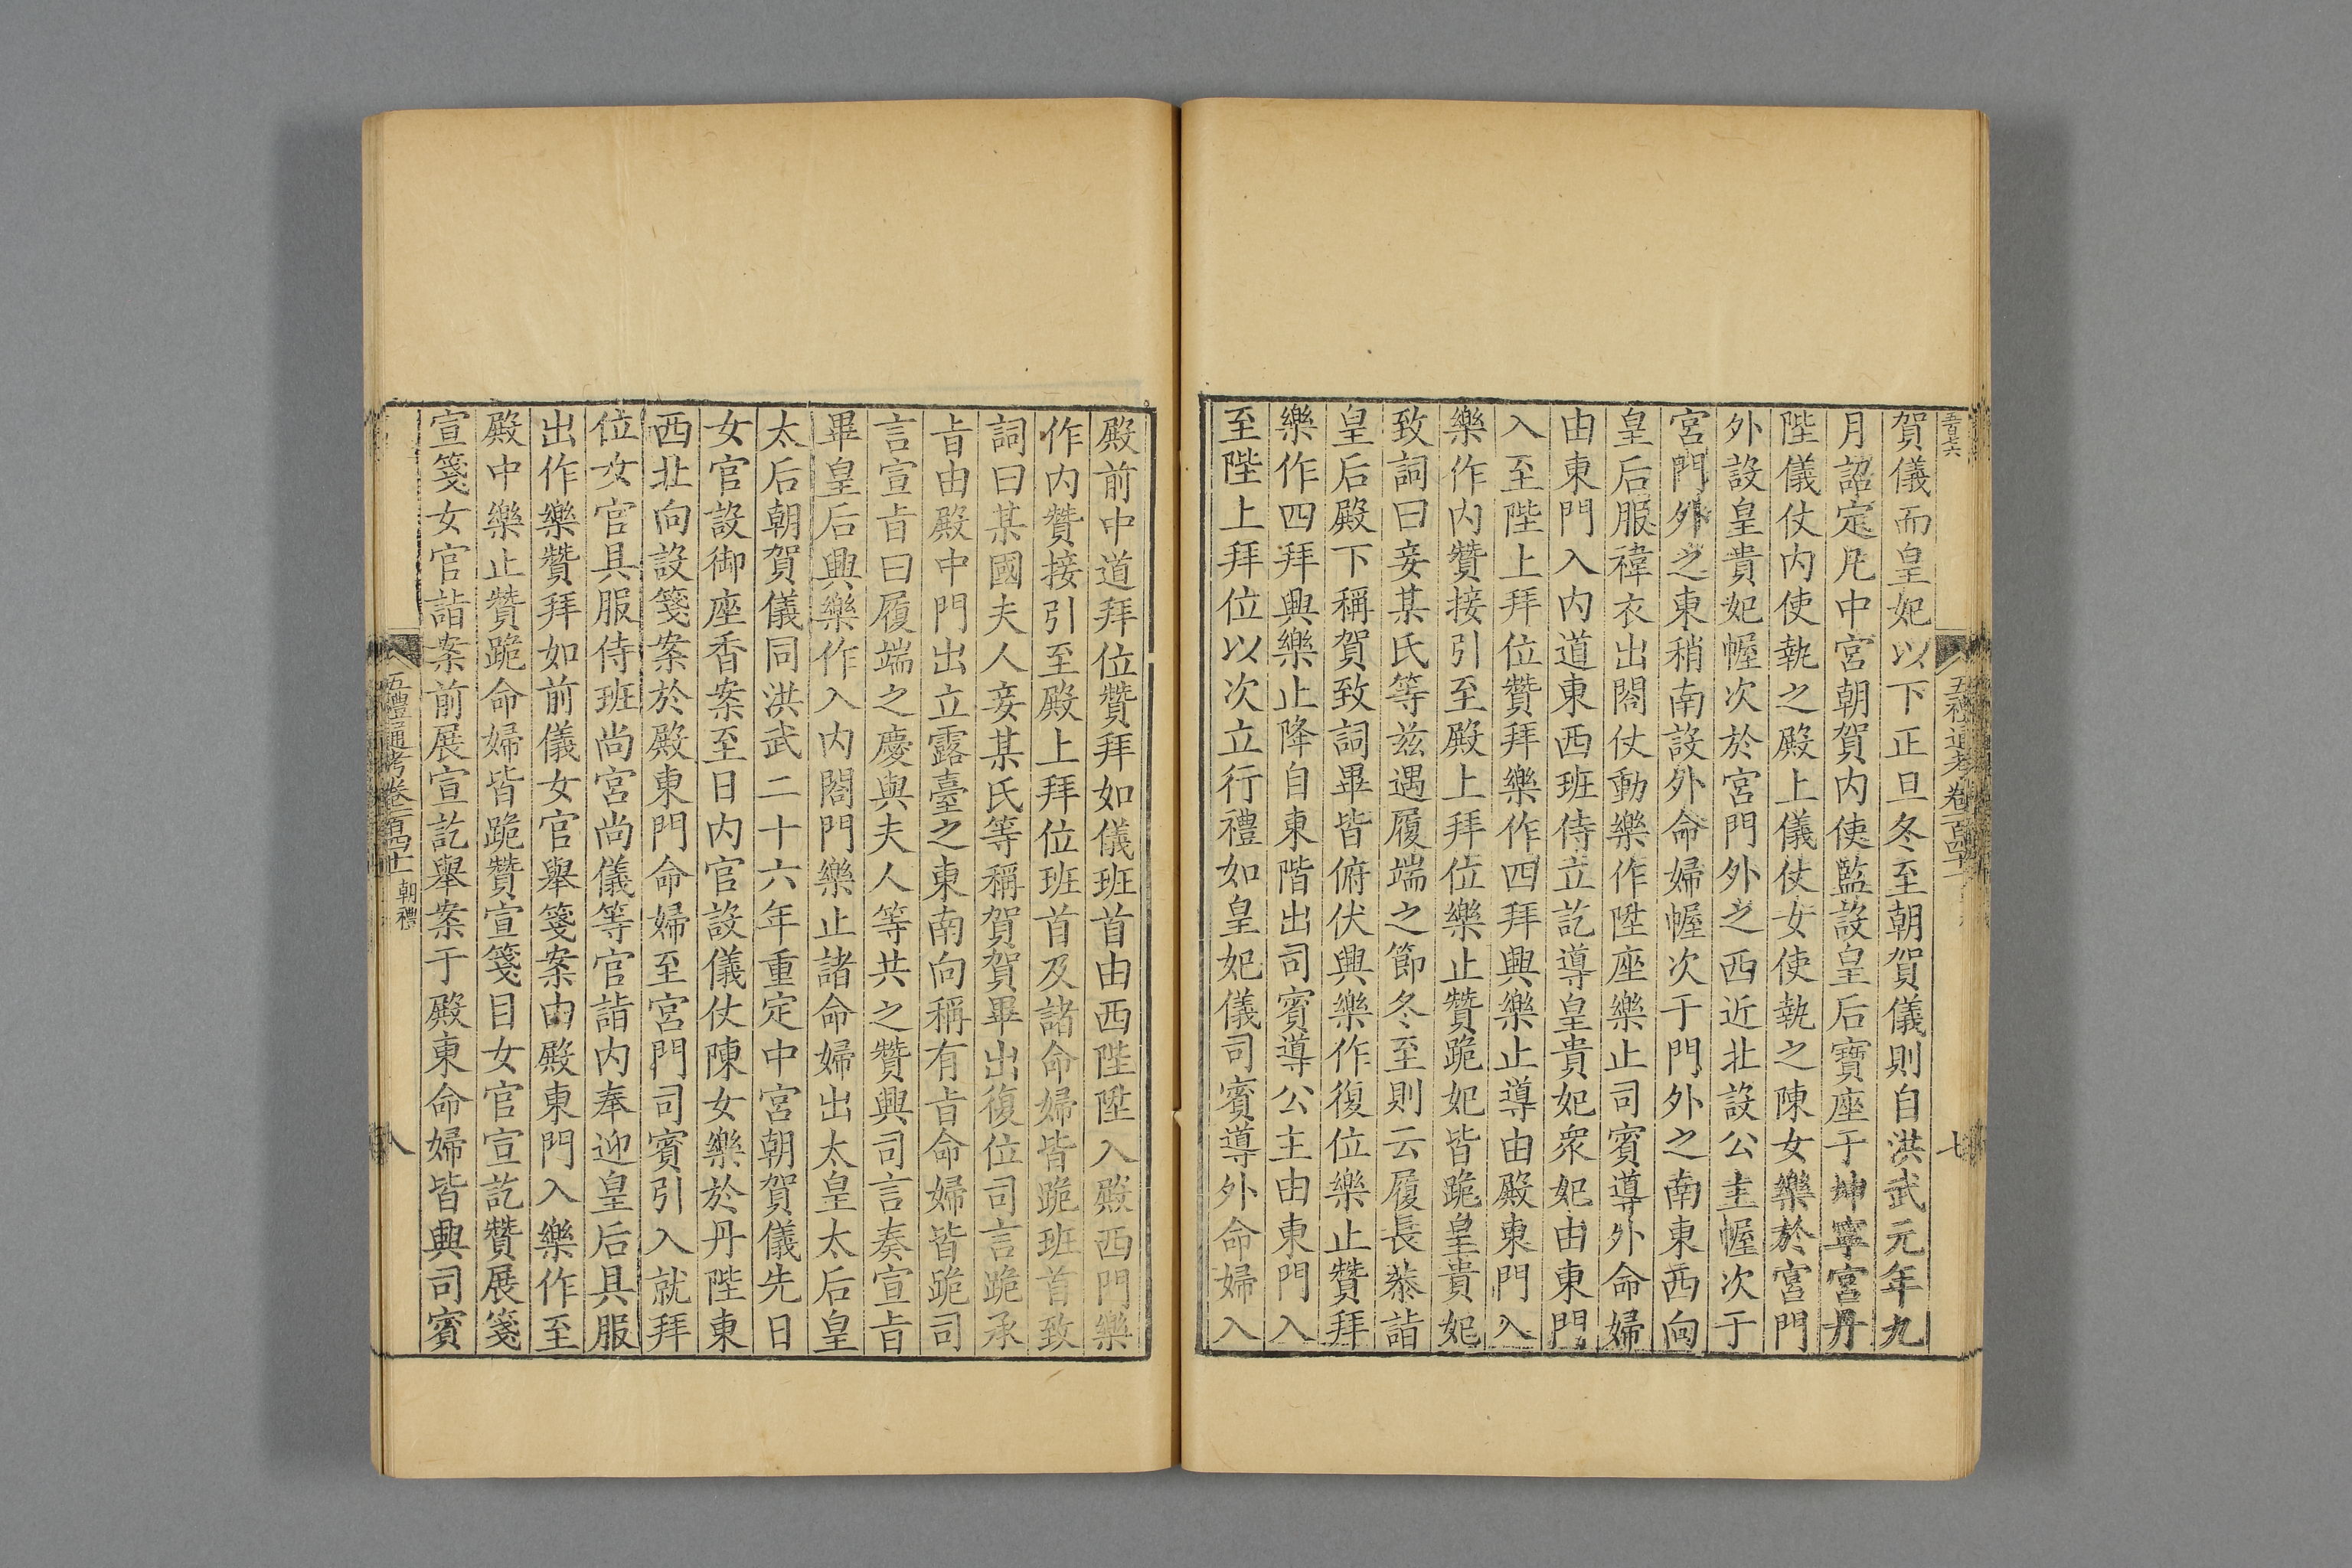 賀儀而皇妃以下正旦冬至朝賀儀則自洪武元年九
月詔定凡中宮朝賀内使監設皇后寶座于坤寧宮丹
陛儀仗内使執之殿上儀仗女使執之陳女樂於宮門
外設皇貴妃幄次於宮門外之西近北設公主幄次于
宮門外之東稍南設外命婦幄次于門外之南東西向
皇后服褘衣出閤仗動樂作陞座樂止司賓導外命婦
由東門入内道東西班侍立訖導皇貴妃衆妃由東門
入至陛上拜位贊拜樂作四拜興樂止導由殿東門入
樂作内贊接引至殿上拜位樂止贊跪妃皆跪皇貴妃
致詞曰妾某氏等兹遇履端之節冬至則云履長恭詣
皇后殿下稱賀致詞畢皆俯伏興樂作復位樂止贊拜
樂作四拜興樂止降自東階出司賓導公主由東門入
至陛上拜位以次立行禮如皇妃儀司賓導外命婦入
殿前中道拜位贊拜如儀班首由西陛陞入殿西門樂
作内贊接引至殿上拜位班首及諸命婦皆跪班首致
詞曰某國夫人妾某氏等稱賀賀畢出復位司言跪承
旨由殿中門出立露臺之東南向稱有旨命婦皆跪司
言宣旨曰履端之慶與夫人等共之贊興司言奏宣旨
畢皇后興樂作入内閤門樂止諸命婦出太皇太后皇
太后朝賀儀同洪武二十六年重定中宮朝賀儀先日
女官設御座香案至日内官設儀仗陳女樂於丹陛東
西北向設箋案於殿東門命婦至宮門司賓引入就拜
位女官具服侍班尚宮尚儀等官詣内奉迎皇后具服
出作樂贊拜如前儀女官舉箋案由殿東門入樂作至
殿中樂止贊跪命婦皆跪贊宣箋目女官宣訖贊展箋
宣箋女官詣案前展宣訖舉案于殿東命婦皆興司賓
五禮通考卷一百四十一 朝禮
八